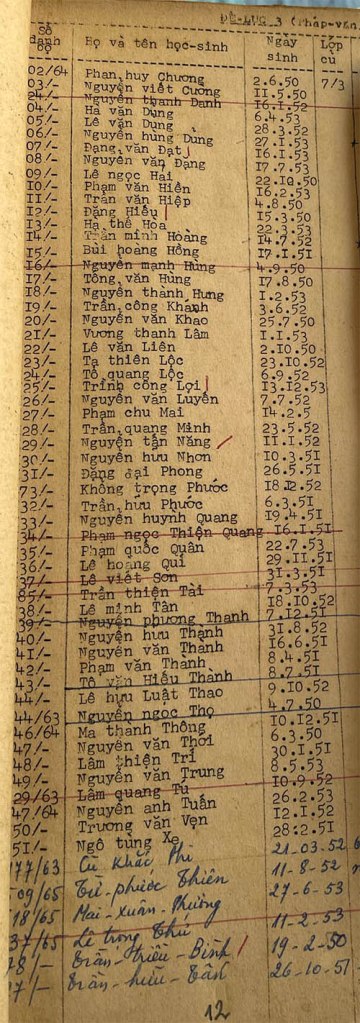 ĐỆ-LỤC 3 (Pháp-văn
Số danh bộ Họ và tên học-sinh Ngày sinh Lớp cũ
02/64 Phan huy Chương 2.6.50 7/3
03/- Nguyễn viết Cương II.5.50
Nguyễn thanh Danh I6.I.52
04/- Hà văn Dũng 6.4.53
05/- Lê văn Dũng 28.3.52
06/- Nguyễn hùng Dũng 27.I.53
07/- Đặng văn Đạt I6.I.53
08/- Nguyễn văn Đặng I7.7.53
09/- Lê ngọc Hai 22.I0.50
I0/- Phạm văn Hiền I6.2.53
II/- Trần văn Hiệp 4.8.50
I2/- Đặng Hiếu I5.3.50
I3/- Hạ thế Hòa 22.3.53
I4/- Trần minh Hoàng I4.7.52
I5/- Bùi hoàng Hồng I7.I.5I
I6/- Nguyễn mạnh Hùng 4.9.50
I7/- Tống văn Hùng I7.8.50
I8/- Nguyễn thành Hưng I.2.53
I9/- Trần công Khanh 3.6.52
20/- Nguyễn văn Khao 25.7.50
2I/- Vương thanh Lâm I.I.53
22/- Lê văn Liên 2.I0.50
23/- Tạ thiên Lộc 23.I0.52
24/- Tô quang Lộc 6.9.52
25/- Trịnh công Lợi I3.I2.53
26/- Nguyễn văn Luyến 7.7.52
27/- Phạm chu Mai I4.2.5
28/- Trần quang Minh 23.5.52
29/- Nguyễn tấn Năng II.I.52
30/- Nguyễn hữu Nhơn I0.3.5I
3I/- Đặng đại Phong 26.5.5I
73/- Khổng trọng Phước I8.I2.52
32/- Trần hữu Phước 6.3.5I
33/- Nguyễn huỳnh Quang I9.4.5I
34/- Phạm ngọc Thiện Quang I6.I.5I
35/- Phạm quốc Quân 22.7.53
36/- Lê hoàng Qui 29.II.5I
37/- Lê viết Sơn 3I.3.5I
85/- Trần thiện Tài 7.3.53
38/- Lê minh Tân I8.I0.52
39/- Nguyễn phương Thanh 7.I2.5I
40/- Nguyễn hữu Thành 3I.8.52
4I/- Nguyễn văn Thành I6.6.5I
42/- Phạm văn Thanh 8.4.5I
43/- Tô văn Hiếu Thành 8.7.5I
44/- Lê hữu Luật Thao 9.I0.52
44/63 Nguyễn ngọc Thọ 4.7.50
46/64 Ma thanh Thông I0.I2.5I
47/- Nguyễn văn Thơi 6.3.50
48/- Lâm thiện Trí 30.I.5I
49/- Nguyễn văn Trung 8.5.53
29/63 Lâm quang Tú I0.9.52
47/64 Nguyễn anh Tuấn 26.2.53
50/- Trương văn Vẹn I2.I.52
5I/- Ngô tùng Xe 28.2.5I
77/63 Cù Khắc Phi 21-03-52
09/65 Từ-phước Thiên 11-8-52
18/65 Mai-Xuân-Phương 27-6-53
37/65 Lê trọng Thứ 11-2-53
78/- Trần-triều-Bình 19-2-50
7/- Trần-hữu-Tân 26-10-51
12